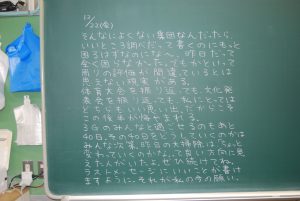 12/22(金)
そんなによくない集団なんだったら、
いいところ調べだって書くのにもっと
困るはずなのになぁ〜。昨日だって
全く困らなかった。でもかといって
周りの評価が間違っているとは
思えない現実がある。
体育大会を振り返っても、文化発
表会を振り返っても、私にとっては
どちらもいい思い出。だからこそ
この後半が悔やまれる。
3Gのみんなと過ごせるのもあと
40日。その40日をどうしていくのかは
みんな次第。昨日の大掃除は、「ちょっと
変わっていくのかな」って良い方向に思
えた人がいたよ。ぜひ続けてね。
ラストメッセージにいいことが書け
ますように。それが私の今の願い。